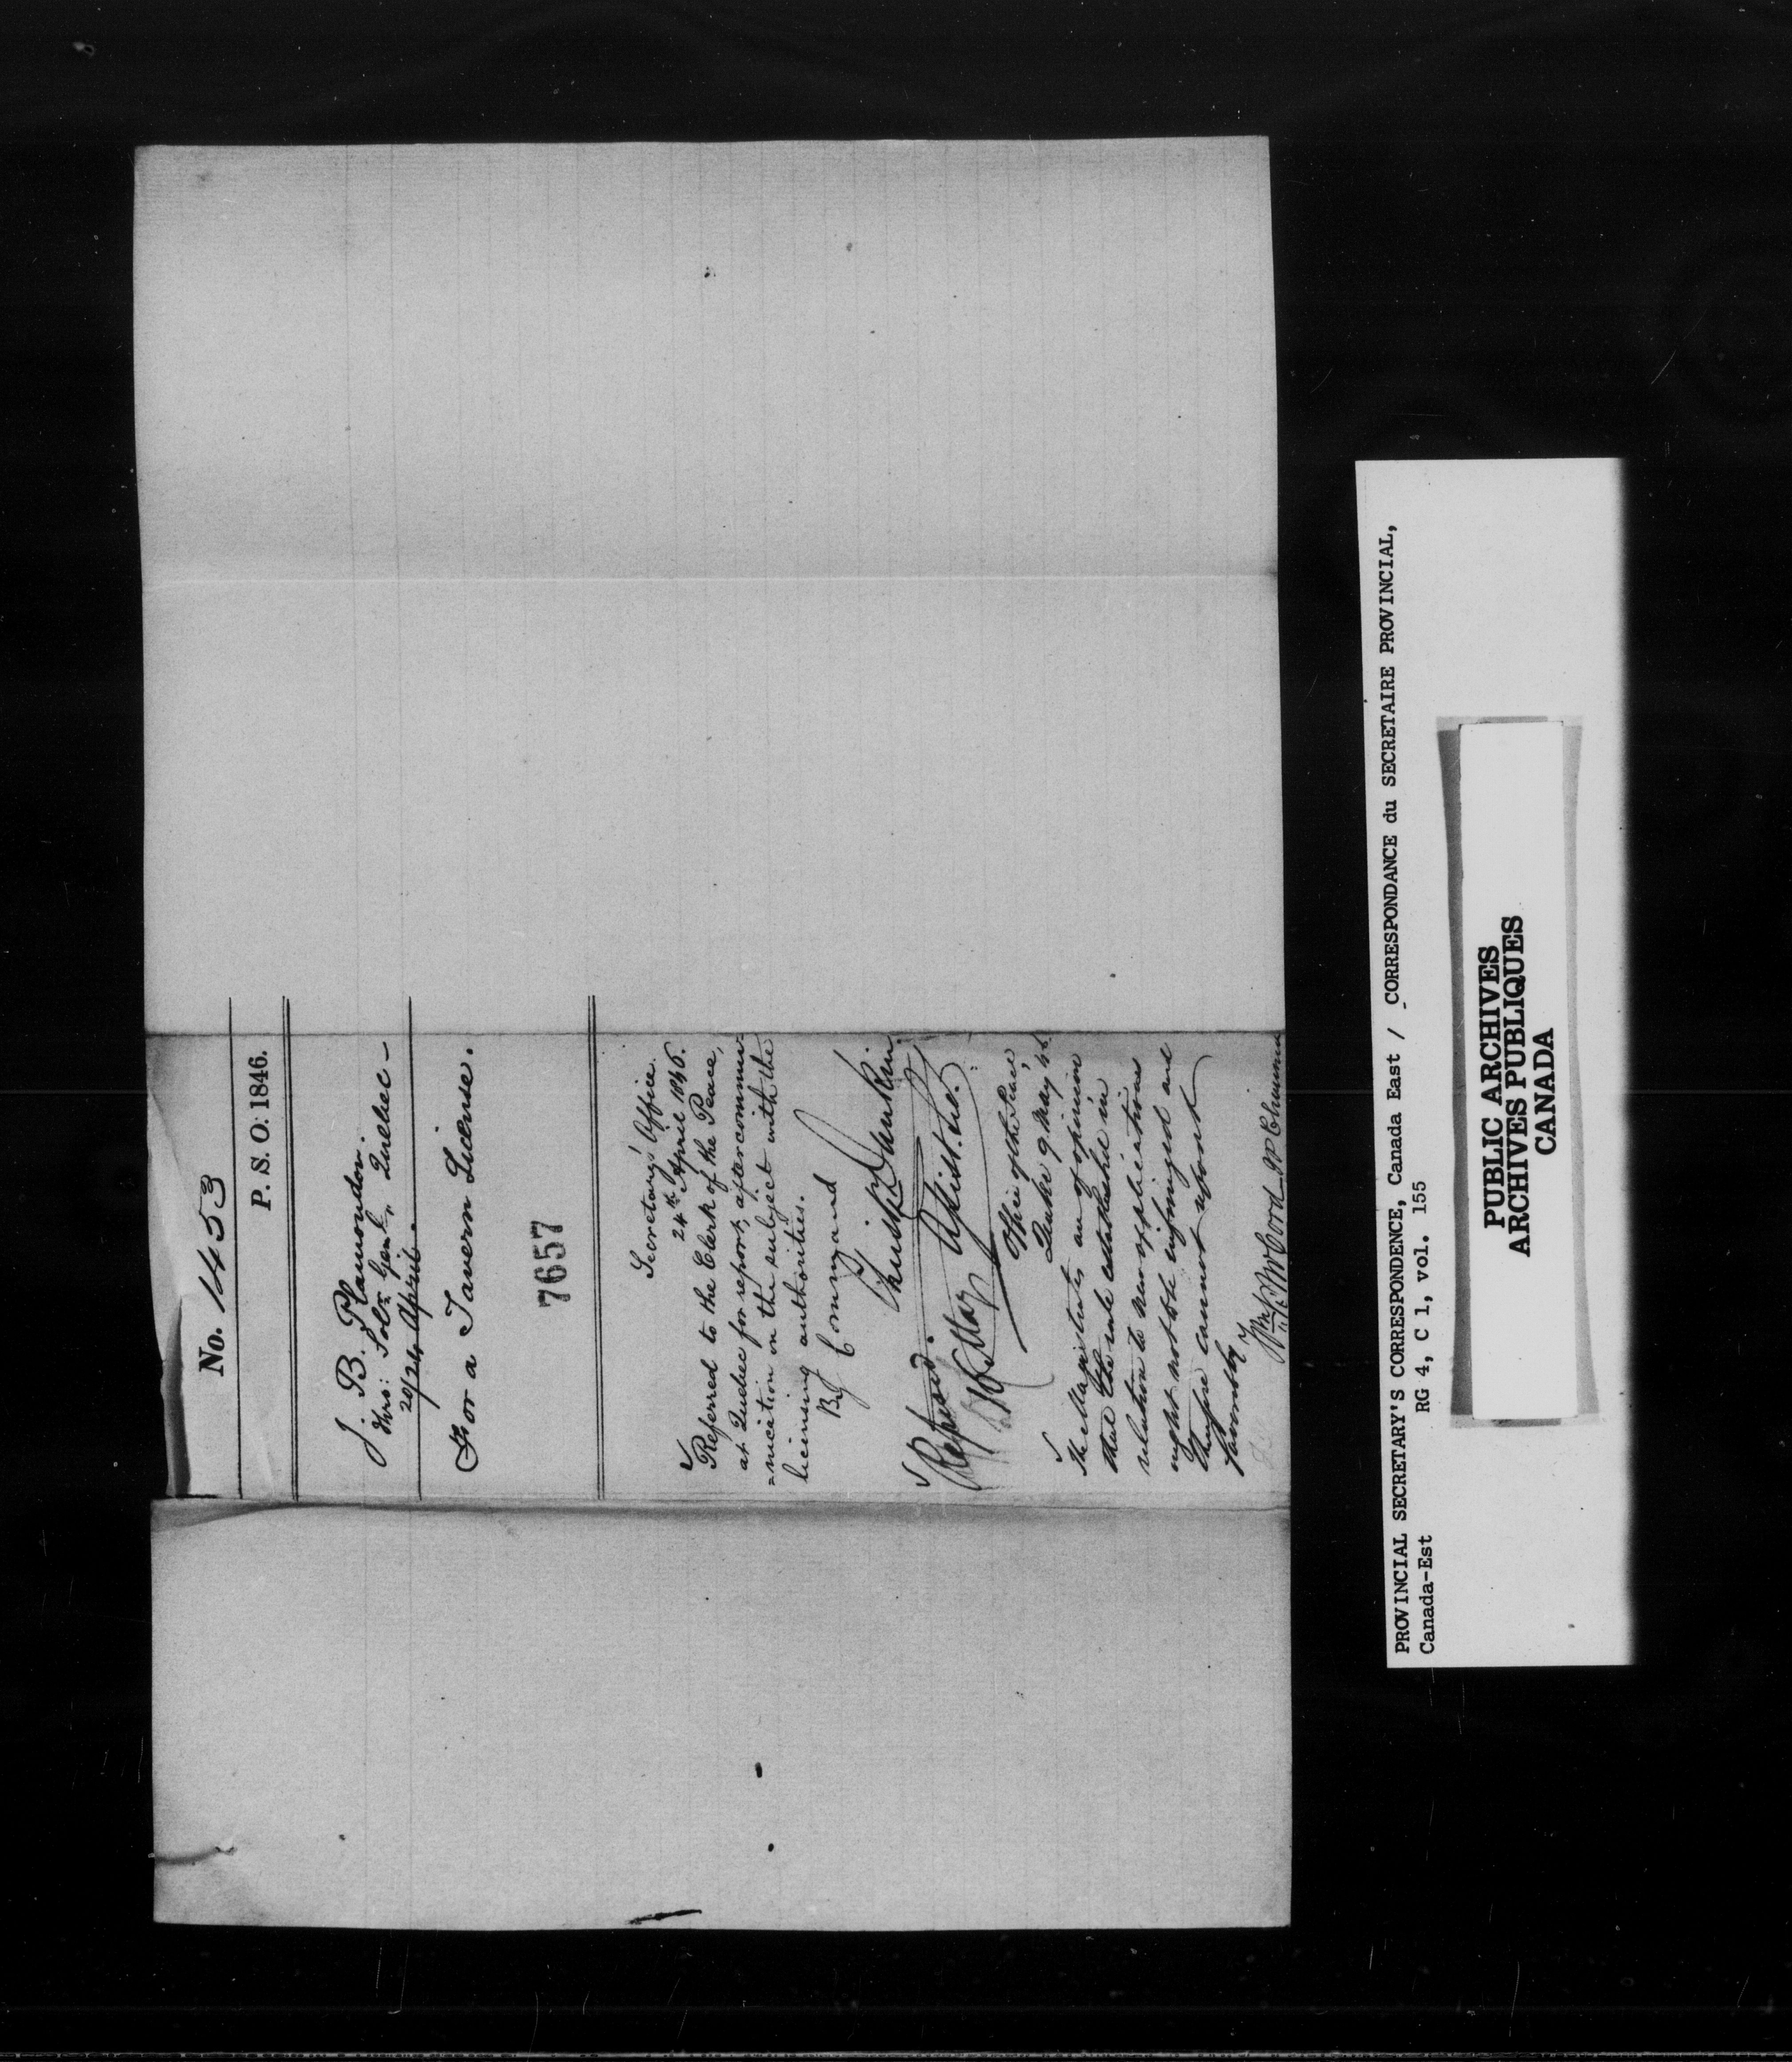 No. 1453
P. S. O: 1846.
J. B. Plamondon.
Thro: Solr. Genl., Quebec -
20/24 April.
For a Tavern License.
7657
Secretary's Office.
24th April 1846.
Referred to the Clerk of the Peace,
at Quebec for report, after commu-
=nication on the subject with the
licensing authorities.
By Command
Christ. Dunkin
Asst. Sec.
Refused.
16 May
Office of the Peace,
Quebec 9 May 46
The Magistrates are of opinion
that the rule established in
relation to new applications
ought not to be infringed and
therefore cannot report
favorably
PROVINCIAL SECRETARY'S CORRESPONDENCE, Canada East / CORRESPONDANCE du SECRETAIRE PROVINCIAL,
Canada-Est RG 4, C 1, vol. 155
PUBLIC ARCHIVES
ARCHIVES PUBLIQUES
CANADA